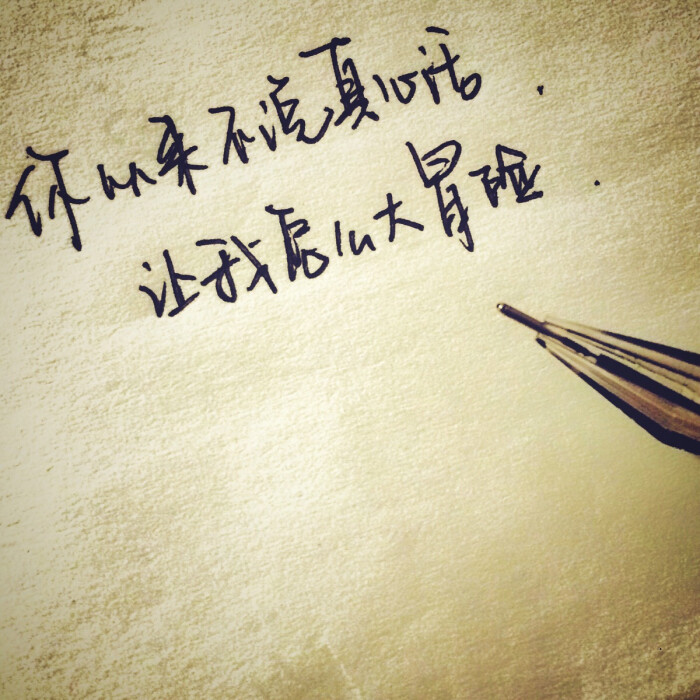 你从来不说真心话.
让我怎么大冒险.